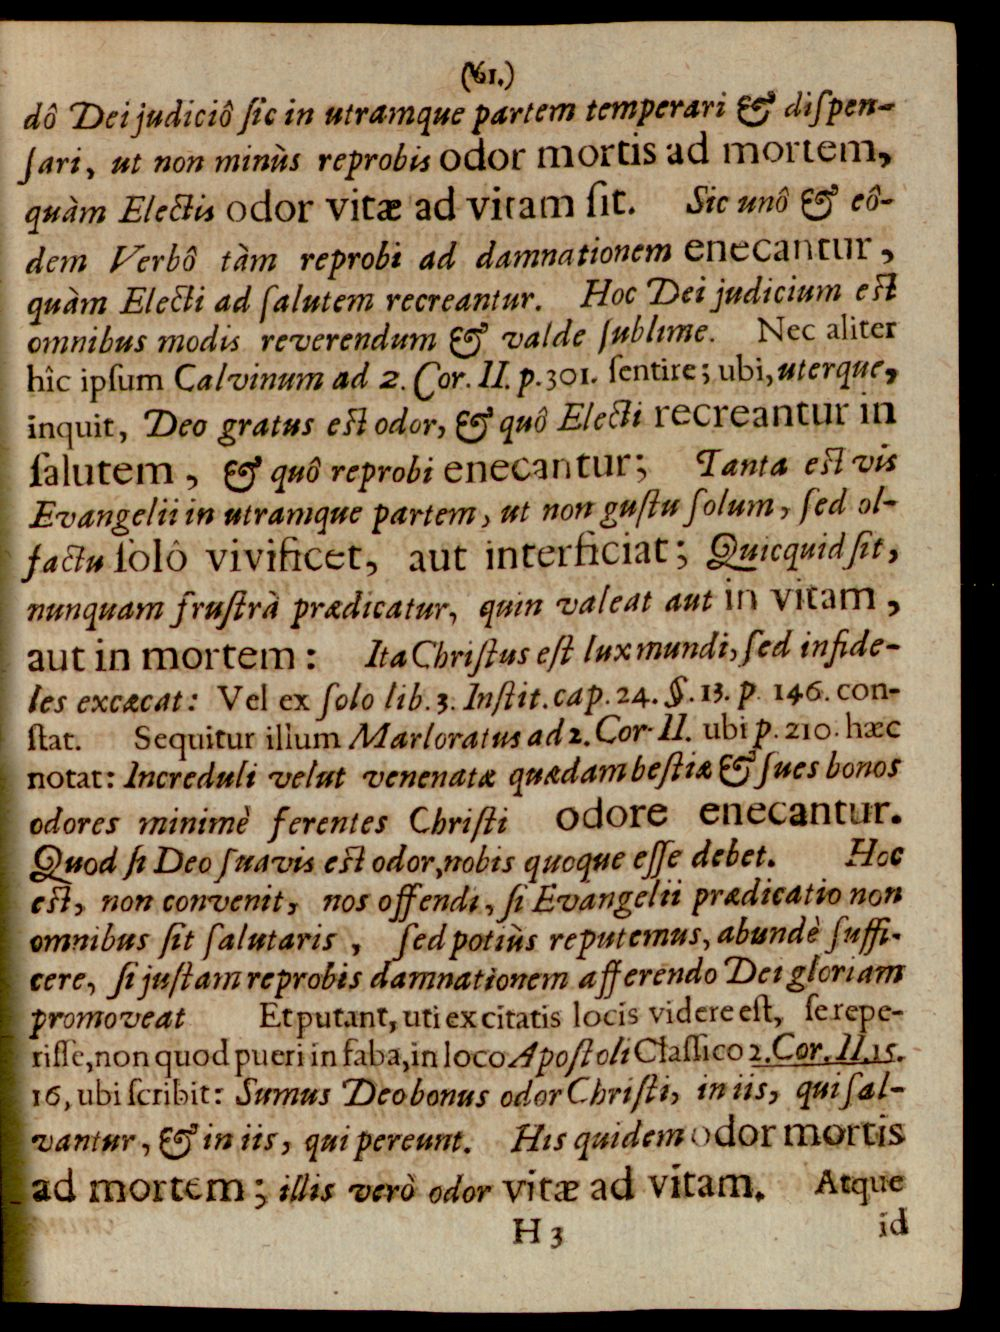 (61.)
dô Dei judiciô ſic in utramque partem temperari & diſpen-
ſari, ut non minùs reprobis odor mortis ad mortem,
quàm Electis odor vitæ ad vitam ſit. Sic unô & eô-
dem Verbô tàm reprobi ad damnationem enecantur,
quàm Electi ad ſalutem recreantur. Hoc Dei judicium eſt
omnibus modis reverendum & valde ſublime. Nec aliter
hîc ipſum Calvinum ad 2. Cor. II. p. 301. ſentire; ubi, uterque,
inquit, Deo gratus eſt odor, & quô Electi recreantur in
ſalutem, & quô reprobi enecantur; Tanta eſt vis
Evangelii in utramque partem, ut non guſtu ſolum, ſed ol-
factu ſolô vivificet, aut interficiat; Quicquid ſit,
nunquam fruſtrà prædicatur, quin valeat aut in vitam,
aut in mortem: Ita Chriſtus eſt lux mundi, ſed infide-
les excæcat: Vel ex ſolo lib. 3. Inſtit. cap. 24. §. 13. p. 146. con-
ſtat. Sequitur illum Marloratus ad 2. Cor. II. ubi p. 210. hæc
notat: Increduli velut venenatæ quædam beſtiæ & ſues bonos
odores minimè ferentes Chriſti odore enecantur.
Quod ſi Deo ſuavis eſt odor, nobis quoque eſſe debet. Hoc
eſt, non convenit, nos offendi, ſi Evangelii prædicatio non
omnibus ſit ſalutaris, ſed potiùs reputemus, abundè ſuffi-
cere, ſi juſtam reprobis damnationem afferendo Dei gloriam
promoveat Et putant, uti ex citatis locis videre eſt, ſe repe-
riſſe, non quod pueri in faba, in loco Apoſtoli Claſſico 2. Cor. II. 15.
16, ubi ſcribit: Sumus Deo bonus odor Chriſti, in iis, qui ſal-
vantur, & in iis, qui pereunt. His quidem odor mortis
ad mortem; illis verò odor vitæ ad vitam. Atque
H 3 id